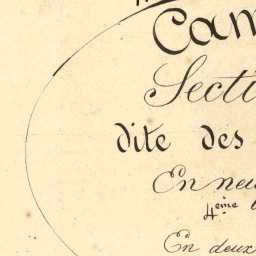 Cam
Secti
dite des
En neu
4ème
En deux